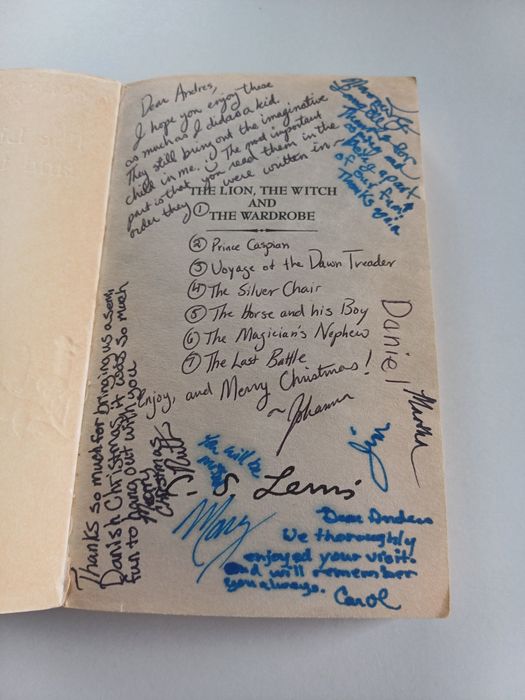 Dear Andres,
I hope you enjoy these
as much as I did as a kid.
They still bring out the imaginative
child in me. :) The most important
part is that you read them in the
order they were written in.
①
THE LION, THE WITCH
AND
THE WARDROBE
② Prince Caspian
③ Voyage of the Dawn Treader
④ The Silver Chair
⑤ The Horse and his Boy
⑥ The Magician's Nephew
⑦ The Last Battle
Enjoy, and Merry Christmas!
~ Johanna
Thank you for
being apart
of our fun!
Thanks again
Daniel
Martha
Jim
Thanks so much for bringing us a semi
Danish Christmas, it adds so much
fun to hang out with you
Merry
Christmas
You will be
missed
Mary
S Lewis
Dear Anders
We thoroughly
enjoyed your visit.
and will remember
you always.
Carol